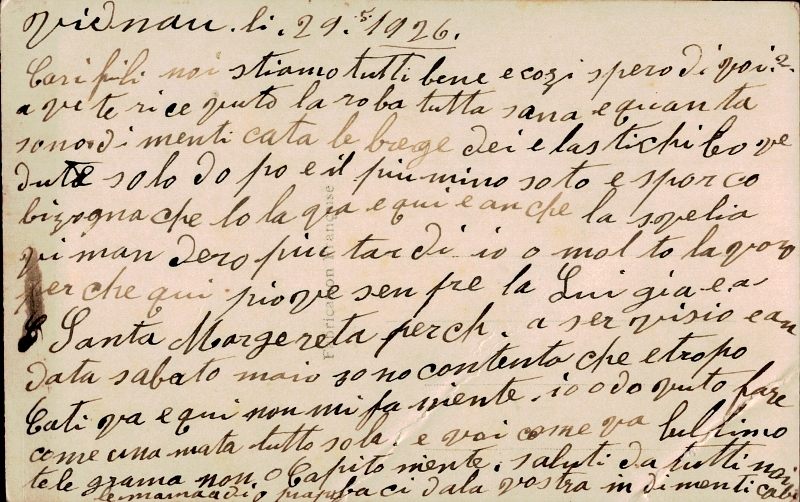 vidnau. li. 29. 5. 1926.
Cari fili noi stiamo tutti bene e cozi spero di voi.
avete rice vuto la roba tutta sana e quanta
sono di menti cata le brege dei e lastichi lo ve
dute solo do po e il piu mino soto e sporco
bizogna che lo la va e qui e anche la svelia
vi man dero piu tardi io o mol to lavoro
perche qui piove sen pre la Luigia e a
S Santa Margereta perch. a ser visio e an
data sabato maio sono contenta che e tropo
Cati va e qui non mi fa niente. io o do vuto fare
come una mata tutto sola. e voi come va lultimo
tele grama non o Capito niente. saluti da tutti noi
e mama adio baci dala vostra in di menti cabi
Fabrication Française